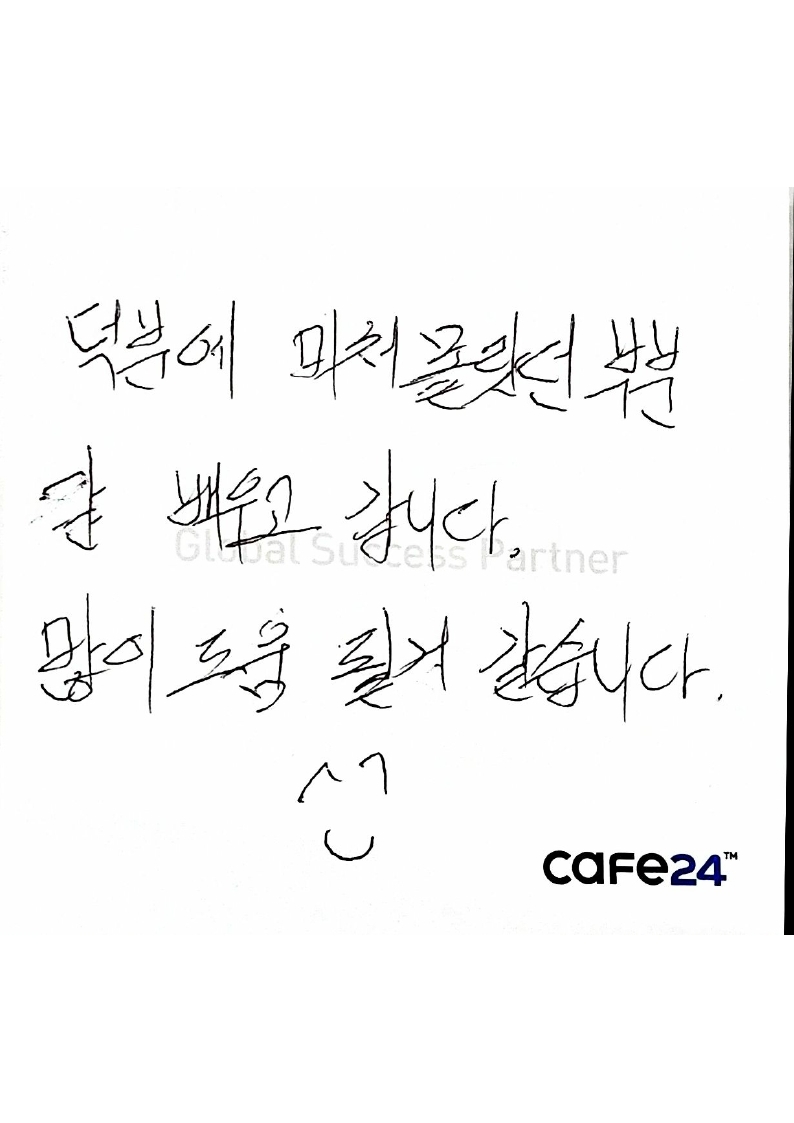 덕분에 미처 몰랐던 부분
잘 배우고 갑니다.
Global Success Partner
많이 도움 될거 같습니다.
cafe24™